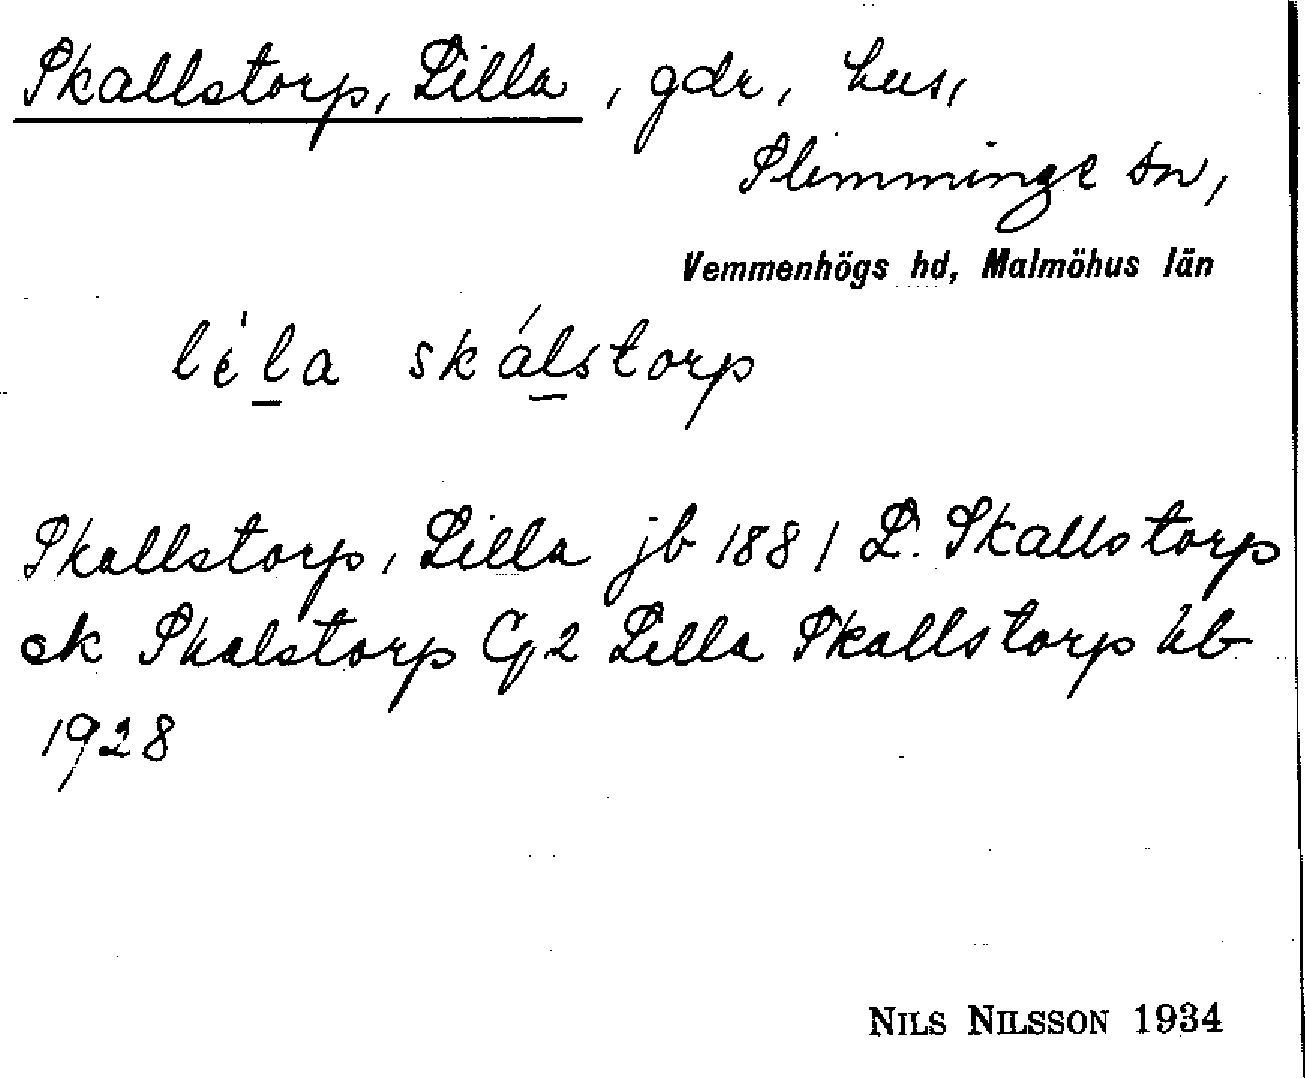 Skallstorp, Lilla, gdr, hus,
Slimminge sn,
Vemmenhögs hd, Malmöhus län
lela skálstorp
Skallstorp, Lilla jb 1881 L. Skallstorp
ek Skalstorp G2 Lilla Skallstorp kb
1928
NILS NILSSON 1934